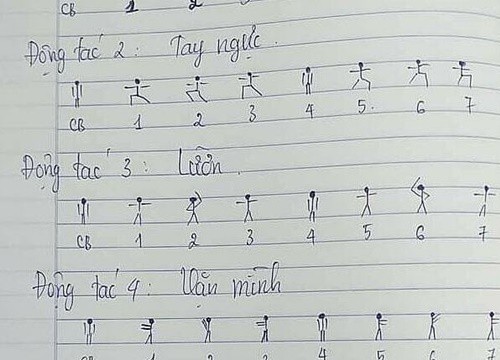 CB 1 2
Động tác 2: Tay ngực.
CB 1 2 3 4 5. 6 7
Động tác 3: Lườn.
CB 1 2 3 4 5 6 7
Động tác 4: Vặn mình
CB 1 2 3 4 5 6 7